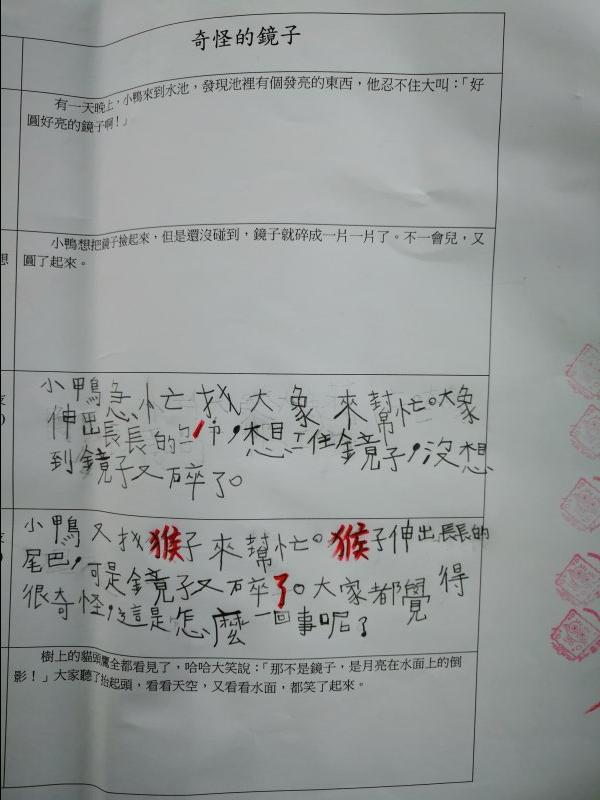 奇怪的鏡子
有一天晚上，小鴨來到水池，發現池裡有個發亮的東西，他忍不住大叫：「好
圓好亮的鏡子啊！」
小鴨想把鏡子撿起來，但是還沒碰到，鏡子就碎成一片一片了。不一會兒，又
圓了起來。
想
小鴨急忙找大象來幫忙。大象
伸出長長的，想住鏡子，沒想
到鏡子又碎了。
小鴨又找猴子來幫忙。猴子伸出長長的
尾巴，可是鏡子又碎了。大家都覺得
很奇怪，這是怎麼一回事呢？
樹上的貓頭鷹全都看見了，哈哈大笑說：「那不是鏡子，是月亮在水面上的倒
影！」大家聽了抬起頭，看看天空，又看看水面，都笑了起來。